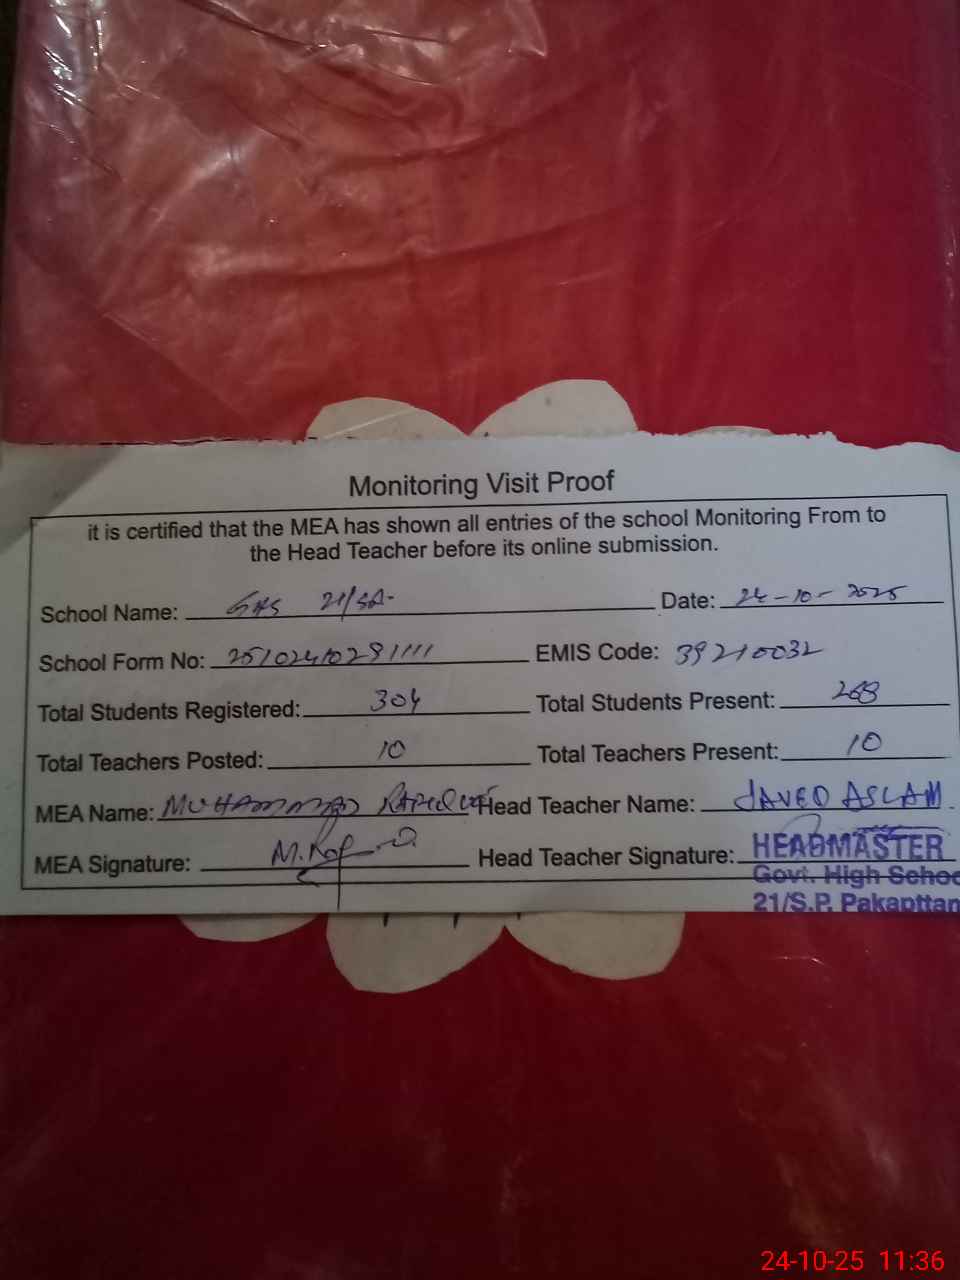 Monitoring Visit Proof
it is certified that the MEA has shown all entries of the school Monitoring From to
the Head Teacher before its online submission.
School Name: GHS 21/SP. Date: 24-10-2025
School Form No: EMIS Code: 39210032
Total Students Registered: 304 Total Students Present: 268
Total Teachers Posted: 10 Total Teachers Present: 10
MEA Name: MUHAMMAD Head Teacher Name: JAVED ASLAM.
MEA Signature: Head Teacher Signature: HEADMASTER
Govt. High Schoo
21/S.P. Pakapttan
24-10-25 11:36